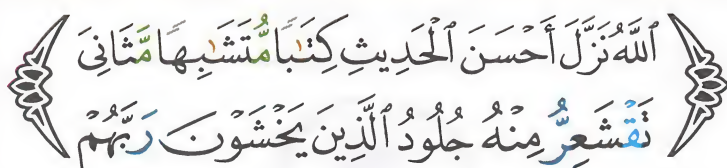 ﴿ ٱللَّهُ نَزَّلَ أَحْسَنَ ٱلْحَدِيثِ كِتَٰبًا مُّتَشَٰبِهًا مَّثَانِىَ
تَقْشَعِرُّ مِنْهُ جُلُودُ ٱلَّذِينَ يَخْشَوْنَ رَبَّهُمْ ﴾